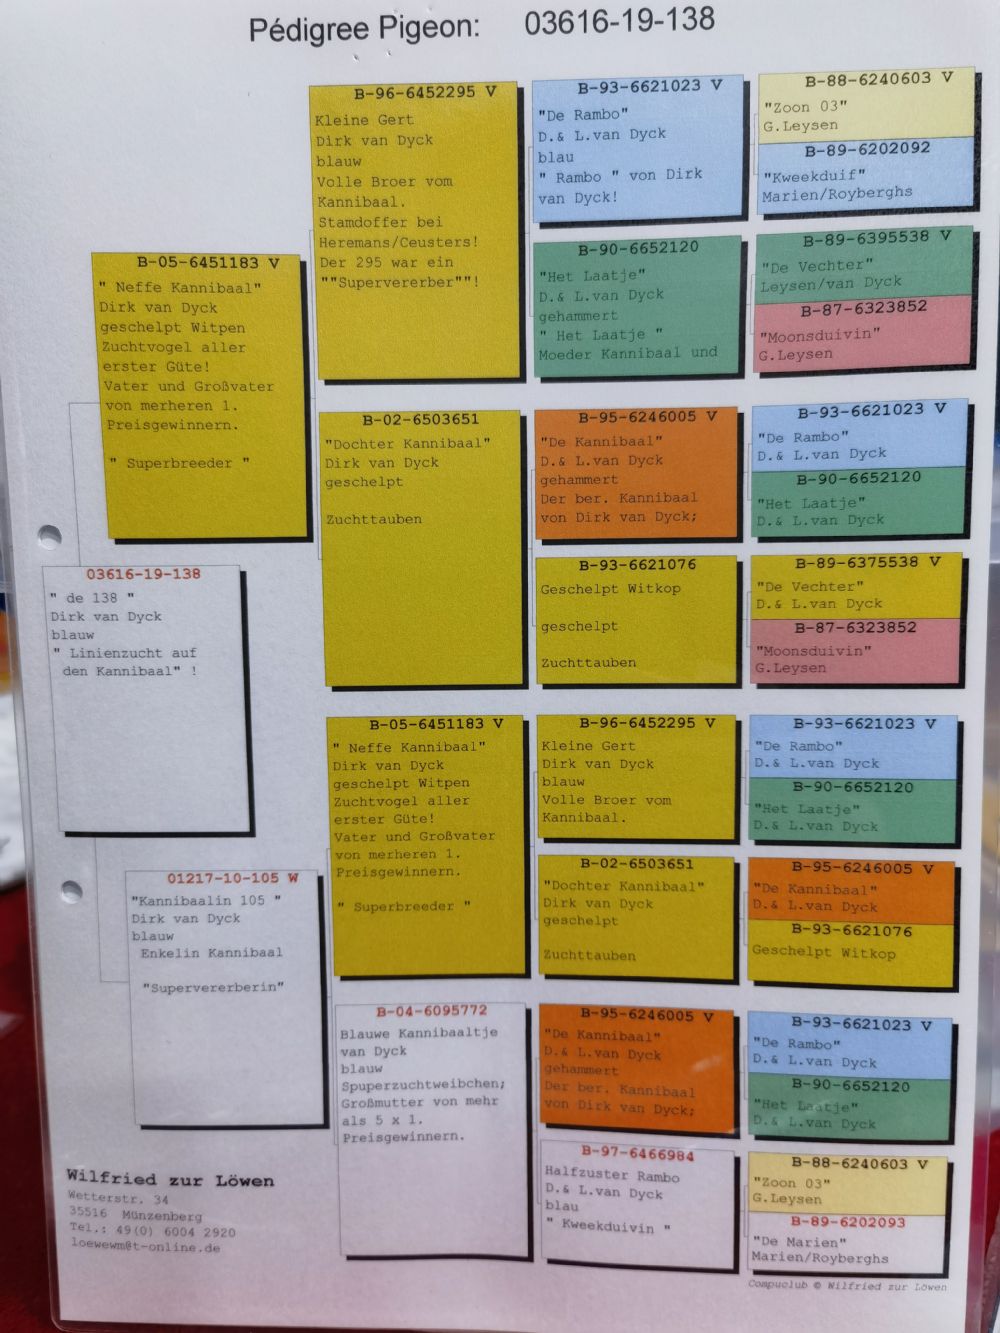 Pédigree Pigeon: 03616-19-138
B-05-6451183 V
" Neffe Kannibaal"
Dirk van Dyck
geschelpt Witpen
Zuchtvogel aller
erster Güte!
Vater und Großvater
von merheren 1.
Preisgewinnern.
" Superbreeder "
03616-19-138
" de 138 "
Dirk van Dyck
blauw
" Linienzucht auf
den Kannibaal" !
01217-10-105 W
"Kannibaalin 105 "
Dirk van Dyck
blauw
Enkelin Kannibaal
"Supervererberin"
B-96-6452295 V
Kleine Gert
Dirk van Dyck
blauw
Volle Broer vom
Kannibaal.
Stamdoffer bei
Heremans/Ceusters!
Der 295 war ein
""Supervererber""!
B-02-6503651
"Dochter Kannibaal"
Dirk van Dyck
geschelpt
Zuchttauben
B-05-6451183 V
" Neffe Kannibaal"
Dirk van Dyck
geschelpt Witpen
Zuchtvogel aller
erster Güte!
Vater und Großvater
von merheren 1.
Preisgewinnern.
" Superbreeder "
B-04-6095772
Blauwe Kannibaaltje
van Dyck
blauw
Spuperzuchtweibchen;
Großmutter von mehr
als 5 x 1.
Preisgewinnern.
B-93-6621023 V
"De Rambo"
D.& L.van Dyck
blau
" Rambo " von Dirk
van Dyck!
B-90-6652120
"Het Laatje"
D.& L.van Dyck
gehammert
" Het Laatje "
Moeder Kannibaal und
B-95-6246005 V
"De Kannibaal"
D.& L.van Dyck
gehammert
Der ber. Kannibaal
von Dirk van Dyck;
B-93-6621076
Geschelpt Witkop
geschelpt
Zuchttauben
B-96-6452295 V
Kleine Gert
Dirk van Dyck
blauw
Volle Broer vom
Kannibaal.
B-02-6503651
"Dochter Kannibaal"
Dirk van Dyck
geschelpt
Zuchttauben
B-95-6246005 V
"De Kannibaal"
D.& L.van Dyck
gehammert
Der ber. Kannibaal
von Dirk van Dyck;
B-97-6466984
Halfzuster Rambo
D.& L.van Dyck
blau
" Kweekduivin "
B-88-6240603 V
"Zoon 03"
G.Leysen
B-89-6202092
"Kweekduif"
Marien/Royberghs
B-89-6395538 V
"De Vechter"
Leysen/van Dyck
B-87-6323852
"Moonsduivin"
G.Leysen
B-93-6621023 V
"De Rambo"
D.& L.van Dyck
B-90-6652120
"Het Laatje"
D.& L.van Dyck
B-89-6375538 V
"De Vechter"
D.& L.van Dyck
B-87-6323852
"Moonsduivin"
G.Leysen
B-93-6621023 V
"De Rambo"
D.& L.van Dyck
B-90-6652120
"Het Laatje"
D.& L.van Dyck
B-95-6246005 V
"De Kannibaal"
D.& L.van Dyck
B-93-6621076
Geschelpt Witkop
B-93-6621023 V
"De Rambo"
D.& L.van Dyck
B-90-6652120
"Het Laatje"
D.& L.van Dyck
B-88-6240603 V
"Zoon 03"
G.Leysen
B-89-6202093
"De Marien"
Marien/Royberghs
Wilfried zur Löwen
Wetterstr. 34
35516 Münzenberg
Tel.: 49(0) 6004 2920
loewewm@t-online.de
Compuclub © Wilfried zur Löwen